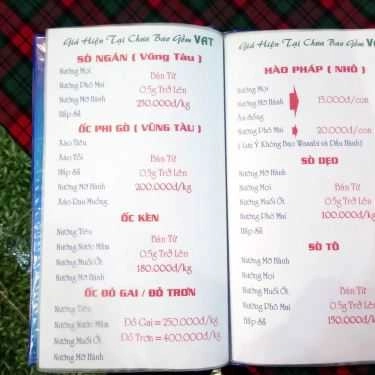 Giá Hiện Tại Chưa Bao Gồm VAT
SÒ NGÁN ( Vũng Tàu )
Nướng Mọi
Nướng Phô Mai
Nướng Mỡ Hành
Hấp Sả
Bán Từ
0.5g Trở Lên
250.000đ/kg
ỐC PHI GÒ ( VŨNG TÀU )
Xào Tiêu
Xào Tỏi
Hấp Sả
Nướng Mỡ Hành
Xào Rau Muống
Bán Từ
0.5g Trở Lên
200.000đ/kg
ỐC KÈN
Nướng Tiêu
Nướng Nước Mắm
Nướng Muối Ớt
Nướng Mỡ Hành
Bán Từ
0.5g Trở Lên
180.000đ/kg
ỐC ĐỎ GAI / ĐỎ TRƠN
Nướng Tiêu
Nướng Nước Mắm
Nướng Muối Ớt
Nướng Mỡ Hành
Đỏ Gai = 250.000đ/kg
Đỏ Trơn = 400.000đ/kg
Giá Hiện Tại Chưa Bao Gồm VAT
HÀO PHÁP ( NHỎ )
Nướng Mọi
Nướng Mỡ Hành
Ăn Sống
15.000đ/con
Nướng Phô Mai
20.000đ/con
( Lưu Ý Không Bao Wasabi và Đậu Hành)
SÒ DẸO
Nướng Mỡ Hành
Nướng Mọi
Nướng Muối Ớt
Nướng Phô Mai
Hấp Sả
Bán Từ
0.5g Trở Lên
100.000đ/kg
SÒ TÔ
Nướng Mỡ Hành
Nướng Mọi
Nướng Muối Ớt
Nướng Phô Mai
Hấp Sả
Bán Từ
0.5g Trở Lên
150.000đ/kg